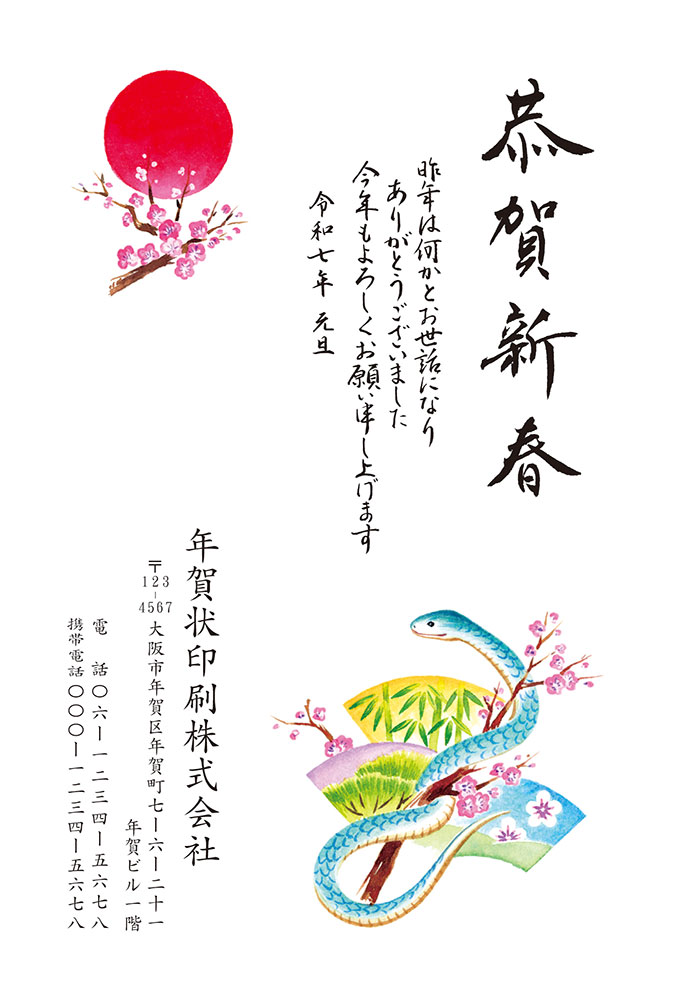 恭賀新春
昨年は何かとお世話になり
ありがとうございました
今年もよろしくお願い申し上げます
令和七年 元旦
年賀状印刷株式会社
〒123-4567 大阪市年賀区年賀町七ー六ー二十一
年賀ビル一階
電話〇六ー一二三四ー五六七八
携帯電話〇〇〇ー一二三四ー五六七八